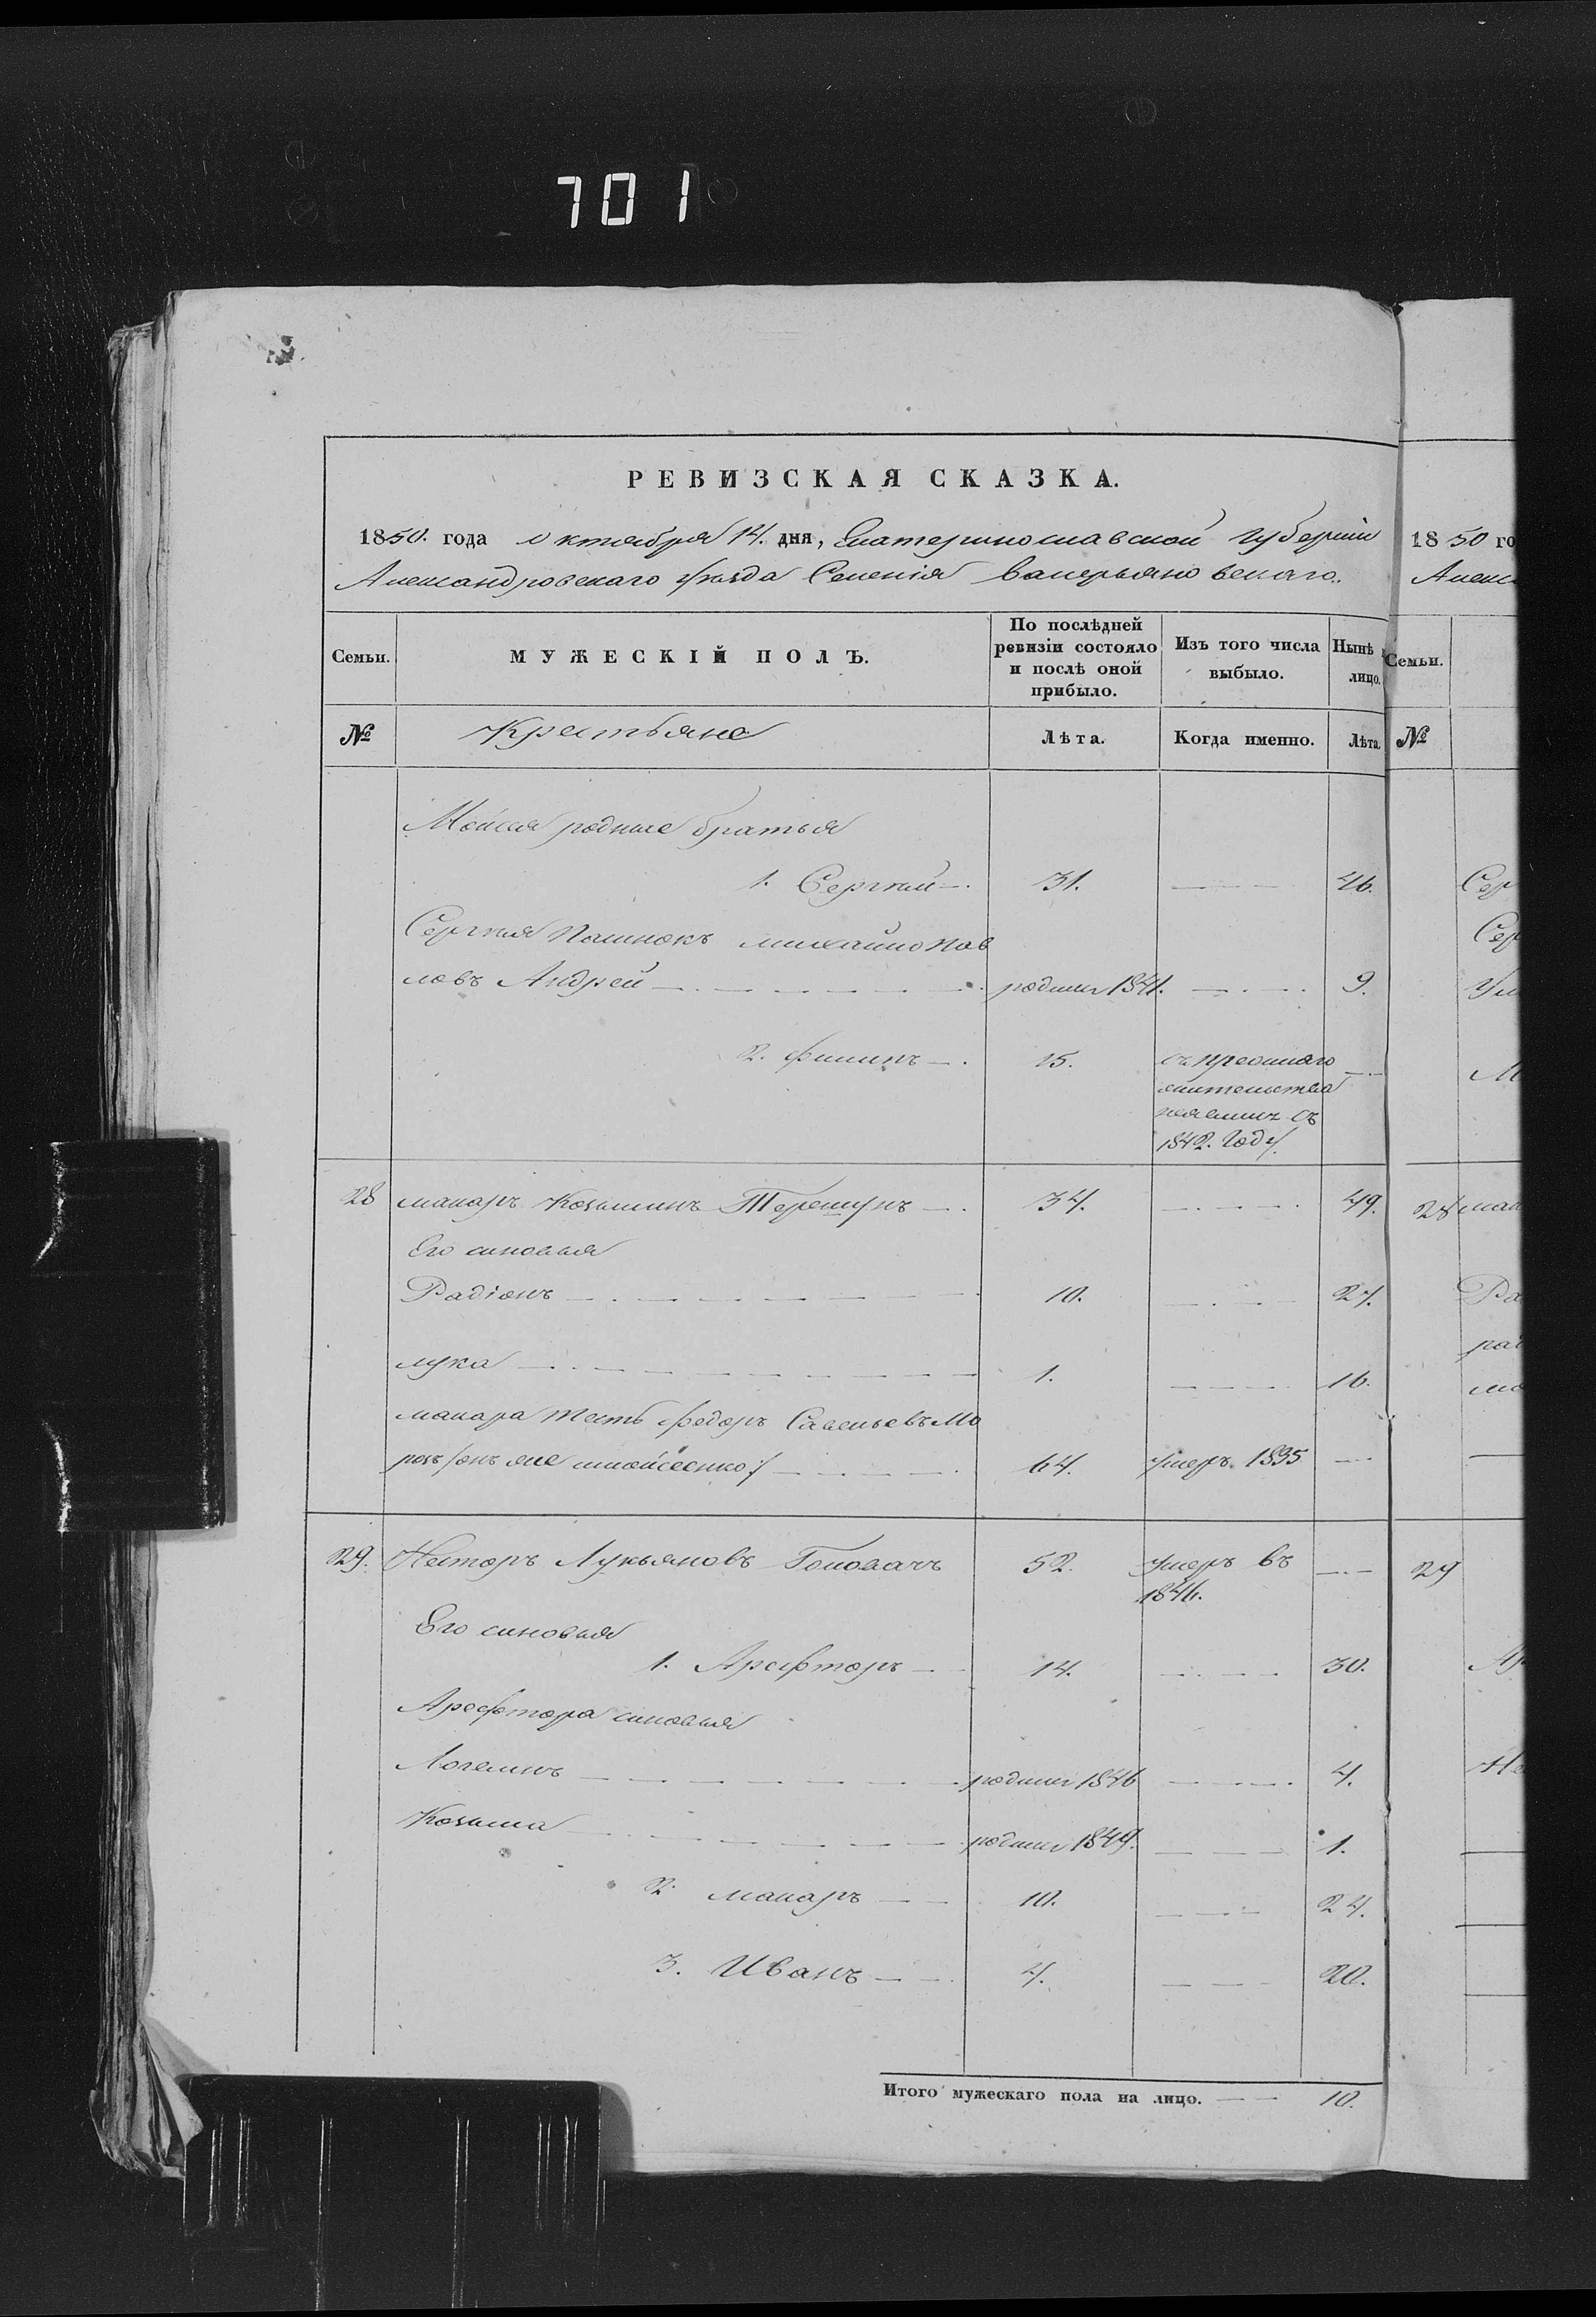 701
РЕВИЗСКАЯ СКАЗКА.
1850. года октября 14. дня, Екатеринославской губерніи
Александровскаго уѣзда Селенія Валерьяновскаго.
Семьи. МУЖЕСКІЙ ПОЛЪ. По послѣдней ревизіи состояло и послѣ оной прибыло. Изъ того числа выбыло. Нынѣ лицо.
№ Крестьяне Лѣта. Когда именно. Лѣта.
Мойсея родные братья
1. Сергѣй 31. 46.
Сергѣя Михайло Пав
ловъ Андрей родился 1841. 9.
2. Филипъ 15. съ
жительства
съ
1842. году
28 Макаръ Козьминъ Терещукъ 34. 49.
Его сыновья
Радіонъ 10. 27.
Лука 1. 16.
Макара тесть Федоръ Савельевъ Мо
розъ /онъ же Мойсеенко:/ 64. умеръ 1835
29. Несторъ Лукьяновъ Головачъ 52. умеръ въ
1846.
Его сыновья
1. Арефторъ 14. 30.
Арефтора сыновья
Логвинъ родился 1846 4.
Козьма родился 1849. 1.
2. Макаръ 10. 24.
3. Иванъ 4. 20.
Итого мужескаго пола на лицо. 10.
1850 го
Алекс
Семьи.
№
Сер
Сер
28 Мак
Ра
29